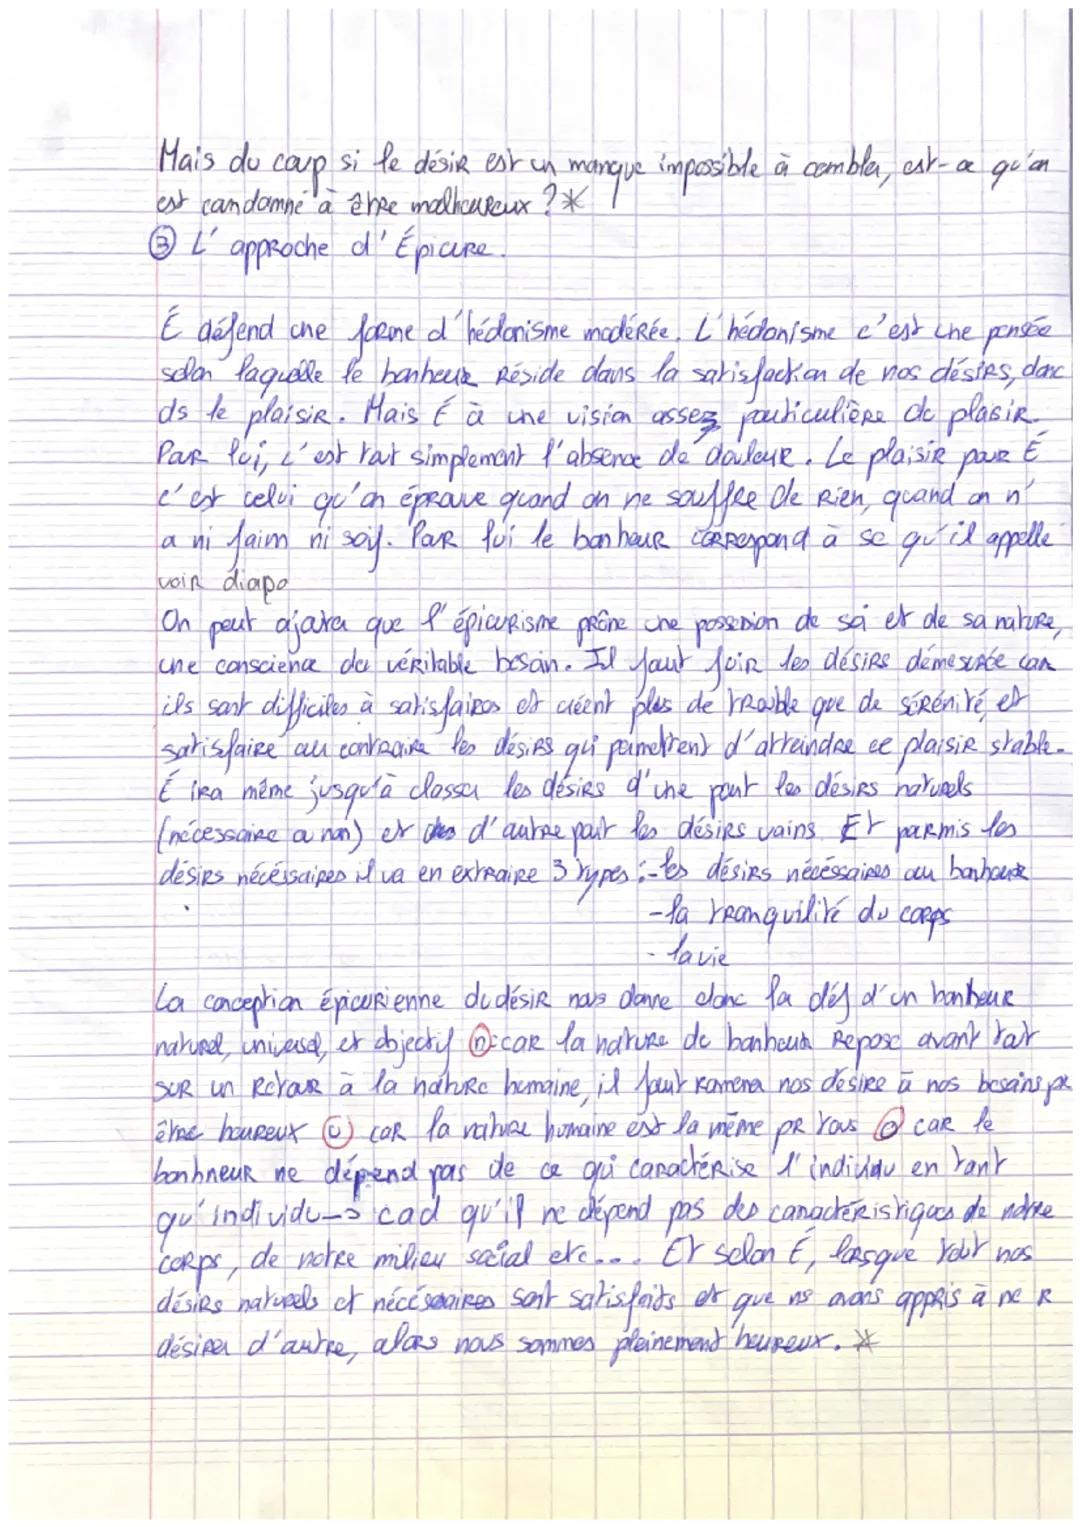 Mais du coup si le désir est un manque impossible à combler, est-ce qu'on
est condamné à être malheureux ? *
③ L'approche d'Épicure.
É défend une forme d'hédonisme modérée. L'hédonisme c'est une pensée
selon laquelle le bonheur réside dans la satisfaction de nos désirs, donc
ds le plaisir. Mais É à une vision assez particulière de plaisir.
Par lui, c'est tout simplement l'absence de douleur. Le plaisir pour É
c'est celui qu'on éprouve quand on ne souffre de rien, quand on n'
a ni faim ni soif. Pour lui le bonheur correspond à se qu'il appelle
voir diapo
On peut ajouter que l'épicurisme prône une possession de soi et de sa nature,
une conscience du véritable besoin. Il faut fuir les désirs démesurée car
ils sont difficiles à satisfaires et créent plus de trouble que de sérénité, et
satisfaire au contraire les désirs qui permettent d'atteindre ce plaisir stable.
É ira même jusqu'à classer les désirs d'une part les désirs naturels
(nécessaire ou non) et d'autre part les désirs vains. Et parmis les
désirs nécéssaires il va en extraire 3 types : - les désirs nécéssaires au bonheur
- la tranquilité du corps
- la vie
La conception épicurienne du désir nous donne donc la déf d'un bonheur
naturel, universel, et objectif ⓝ: car la nature de bonheur repose avant tout
sur un retour à la nature humaine, il faut ramener nos désire à nos besoins pr
être heureux ⓤ car la nature humaine est la même pr tous ⓞ car le
bonhneur ne dépend pas de ce qui caractérise l'individu en tant
qu'individu → cad qu'il ne dépend pas des caractéristiques de notre
corps, de notre milieu social etc... Et selon É, lorsque tout nos
désirs naturels et nécéssaires sont satisfaits et que ns avons appris à ne r
désirer d'autre, alors nous sommes pleinement heureux. *